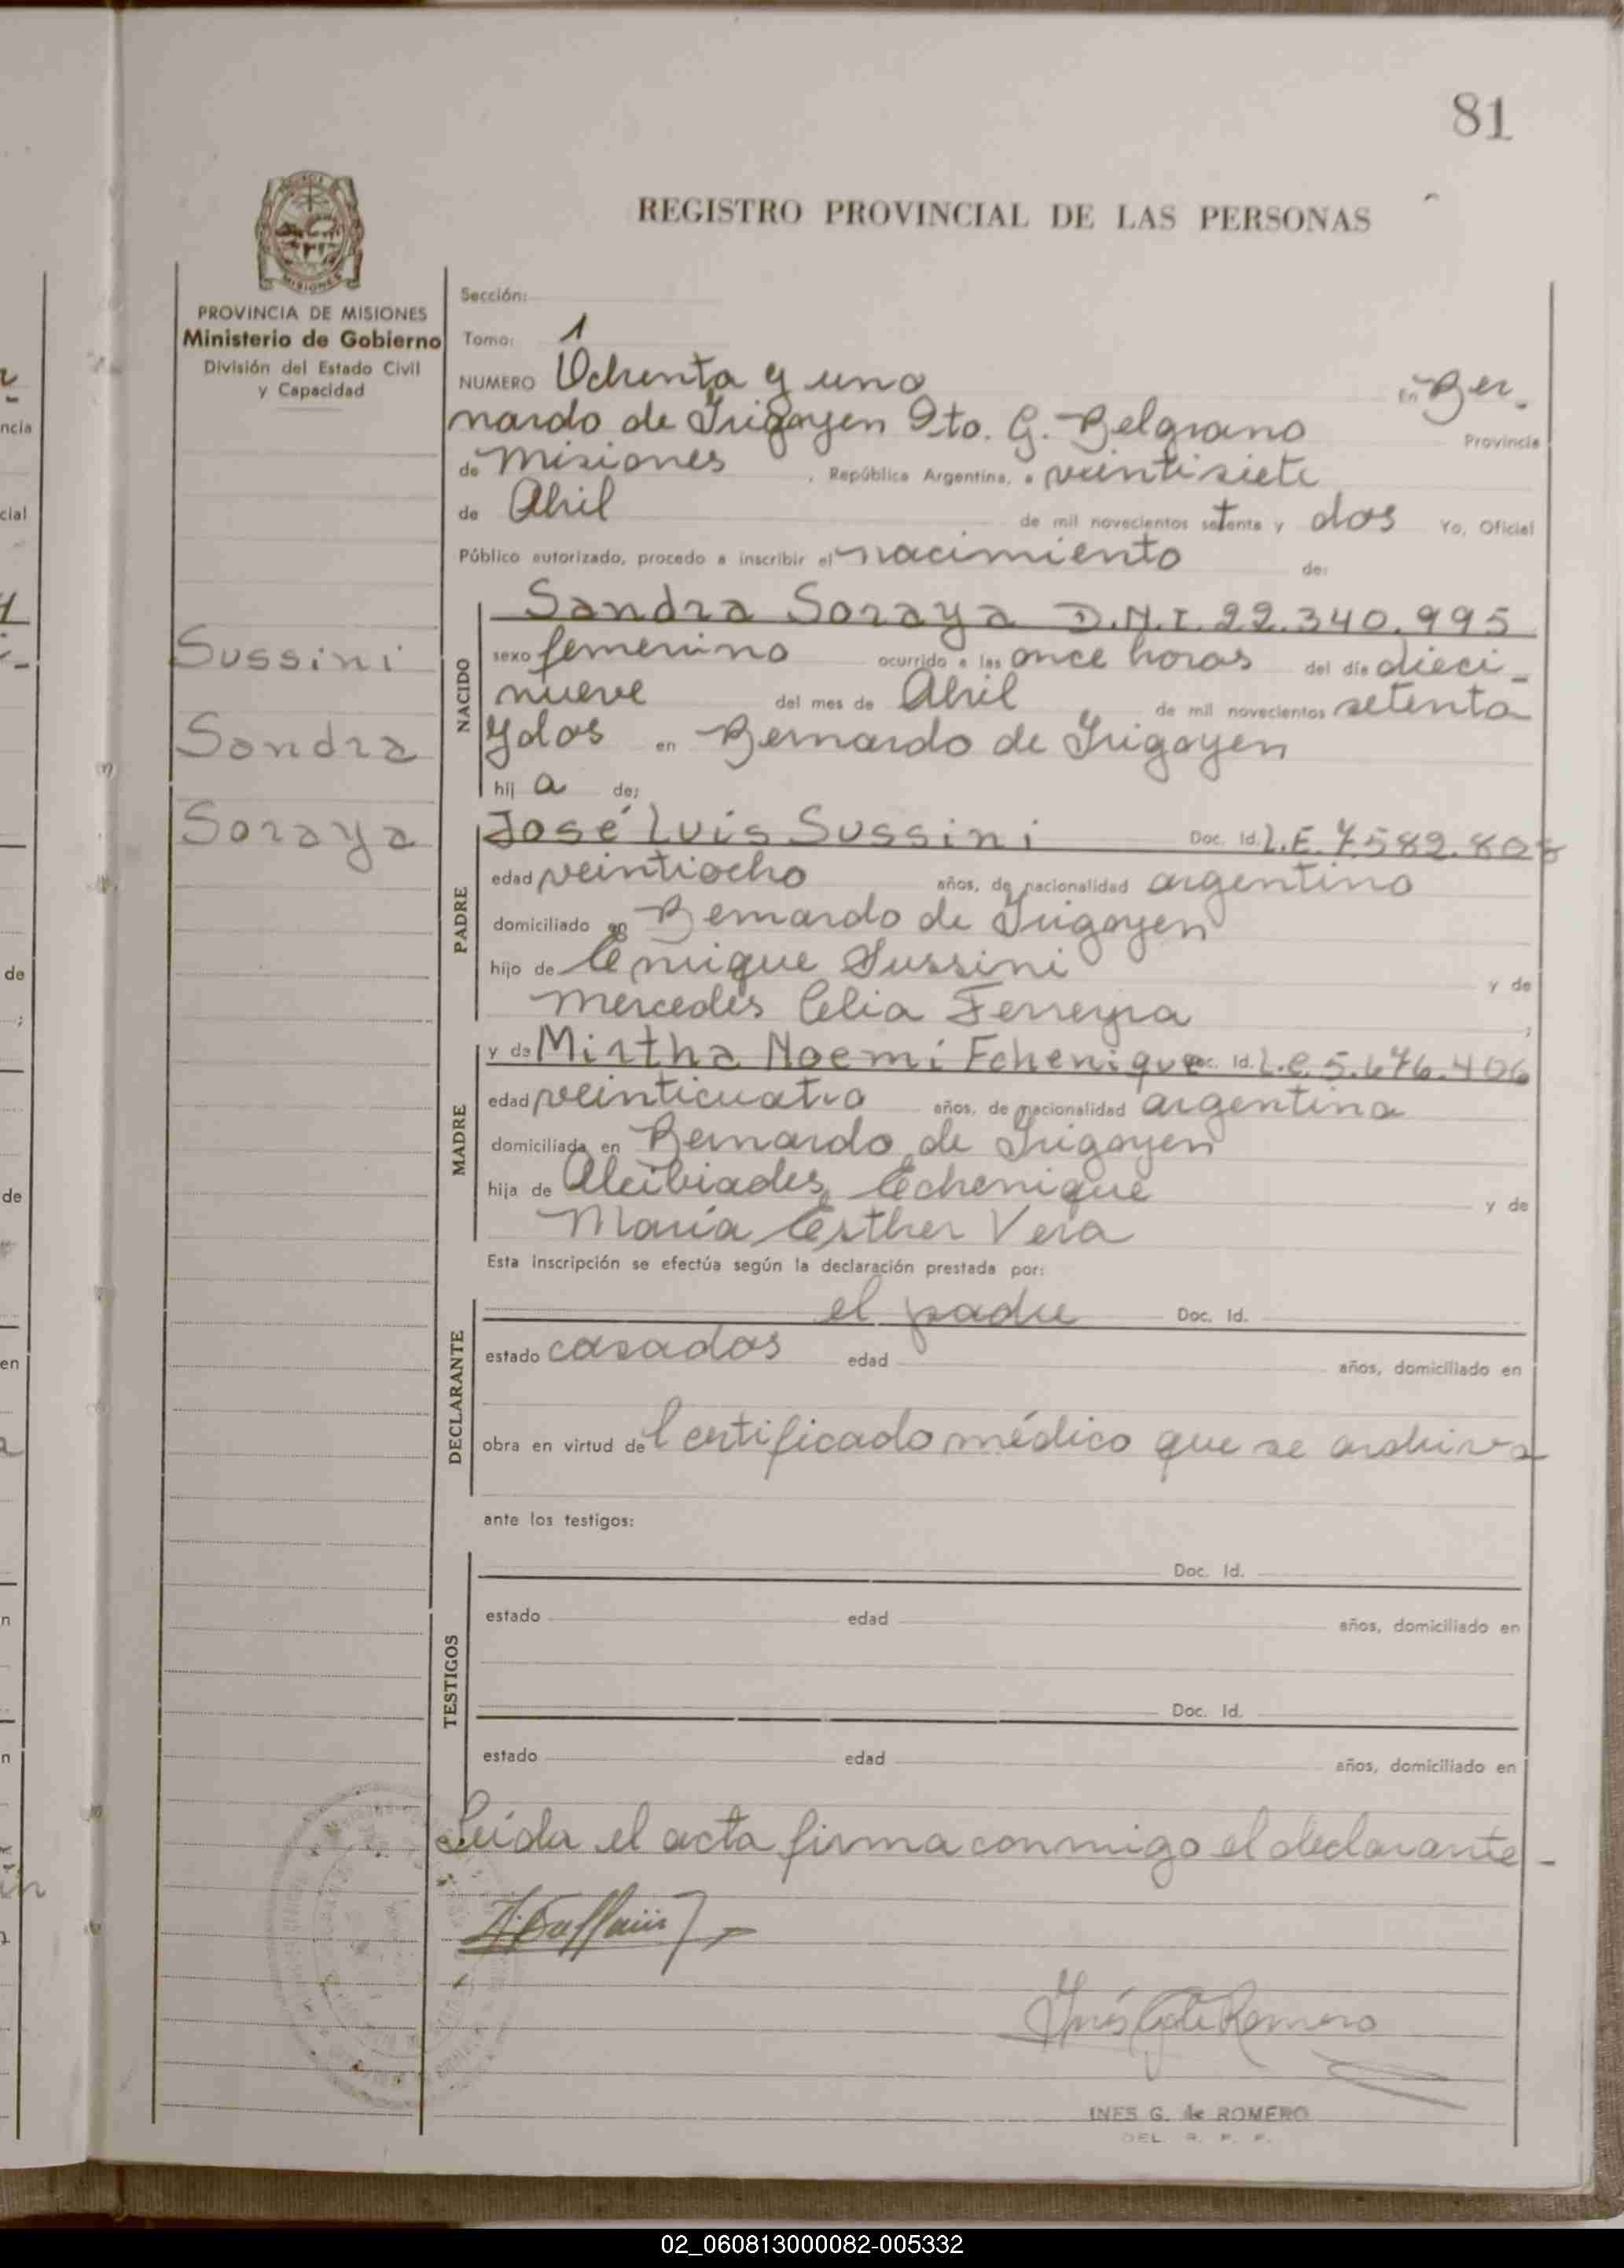 81
REGISTRO PROVINCIAL DE LAS PERSONAS
MISIONES
PROVINCIA DE MISIONES
Ministerio de Gobierno
División del Estado Civil
y Capacidad
Sussini
Sandra
Soraya
Sección:
Tomo: 1
NUMERO Ochenta y uno En Ber-
nardo de Irigoyen Dto. G. Belgrano Provincia
de Misiones, República Argentina, a veintisiete
de Abril de mil novecientos setenta y dos Yo, Oficial
Público autorizado, procedo a inscribir el nacimiento de:
NACIDO
Sandra Soraya D.N.I. 22.340.995
sexo femenino ocurrido a las once horas del día dieci-
nueve del mes de Abril de mil novecientos setenta
y dos en Bernardo de Irigoyen
hij a de:
PADRE
José Luis Sussini Doc. Id. L.E. 7.582.808
edad veintiocho años, de nacionalidad argentino
domiciliado en Bernardo de Irigoyen
hijo de Enrique Sussini y de
Mercedes Celia Ferreyra;
MADRE
y de Mirtha Noemí Echenique Doc. Id. L.C. 5.676.406
edad veinticuatro años, de nacionalidad argentina
domiciliada en Bernardo de Irigoyen
hija de Alcibiades Echenique y de
María Esther Vera
Esta inscripción se efectúa según la declaración prestada por:
DECLARANTE
el padre Doc. Id.
estado casados edad años, domiciliado en
obra en virtud de Certificado médico que se archiva
ante los testigos:
TESTIGOS
Doc. Id.
estado edad años, domiciliado en
Doc. Id.
estado edad años, domiciliado en
Leída el acta firma conmigo el declarante-
Inés G de Romero
INES G. de ROMERO
DEL. R. P. P.
02_060813000082-005332